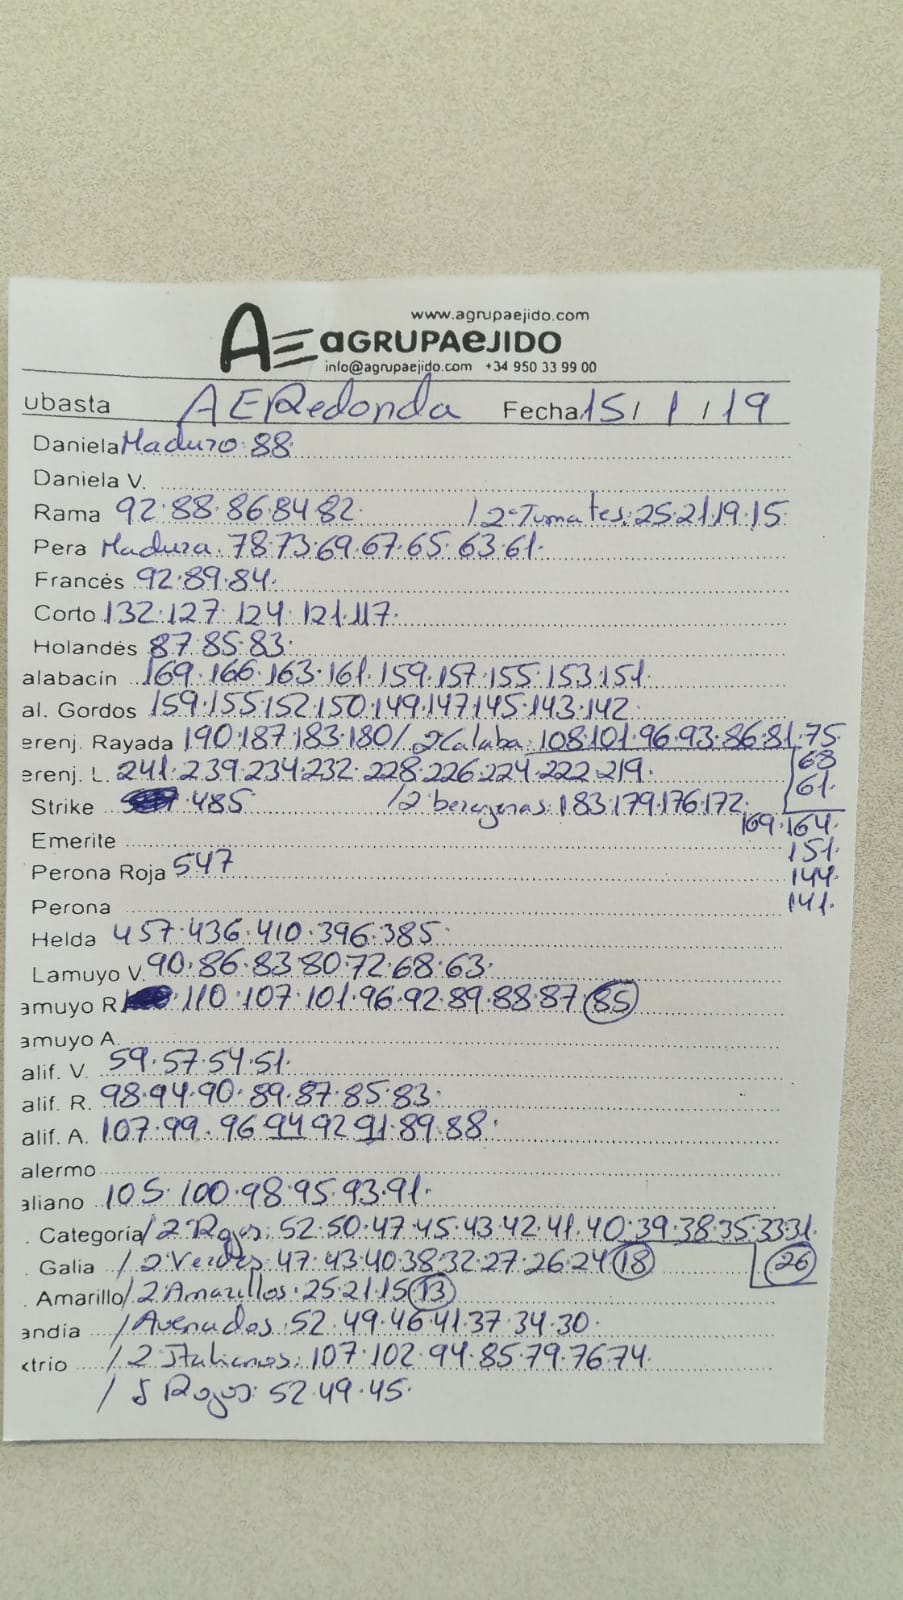 www.agrupaejido.com
AE aGRUPAeJIDO
info@agrupaejido.com +34 950 33 99 00
ubasta AERedonda Fecha 15/1/19
Daniela Maduro. 88
Daniela V.
Rama 92.88.86.84.82 / 2ª Tomates: 25.21.19.15
Pera Madura. 78.73.69.67.65.63.61.
Francés 92.89.84.
Corto 132.127.124.121.117.
Holandés 87.85.83.
alabacín 169.166.163.161.159.157.155.153.151.
al. Gordos 159.155.152.150.149.147.145.143.142
erenj. Rayada 190.187.183.180/2ª Calaba: 108.101.96.93.86.81.75
68
erenj. L. 241.239.234.232.228.226.224.222.219.
61.
Strike 485 /2 berenjenas: 183.179.176.172.
169.164.
Emerite
151.
Perona Roja 547
144.
Perona
141.
Helda 457.436.410.396.385.
Lamuyo V. 90.86.83.80.72.68.63.
amuyo R. 110.107.101.96.92.89.88.87 85
amuyo A.
alif. V. 59.57.54.51.
alif. R. 98.94.90.89.87.85.83.
alif. A. 107.99.96.94.92.91.89.88.
alermo
aliano 105.100.98.95.93.91.
. Categoría / 2 Rojos: 52.50.47.45.43.42.41.40.39.38.35.33.31.
. Galia / 2 Verdes: 47.43.40.38.32.27.26.24 18
26
. Amarillo / 2 Amarillos: 25.21.15 13
andia / Asurados: 52.49.46.41.37.34.30.
xtrio / 2 Italianos: 107.102.94.85.79.76.74.
/ S Rojos: 52.49.45.